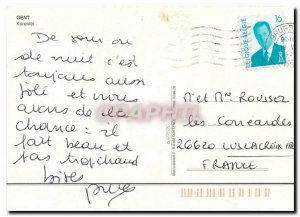 GENT
Korenlei
De jour ou
de nuit c'est
toujours aussi
joli et nous
avons de la
chance : il
fait beau et
pas trop chaud
bises
16
BELGIQUE-BELGIE
Mr et Mme ROUSSET
les Concordes
26620 LUS LACROIX HTE
FRANCE